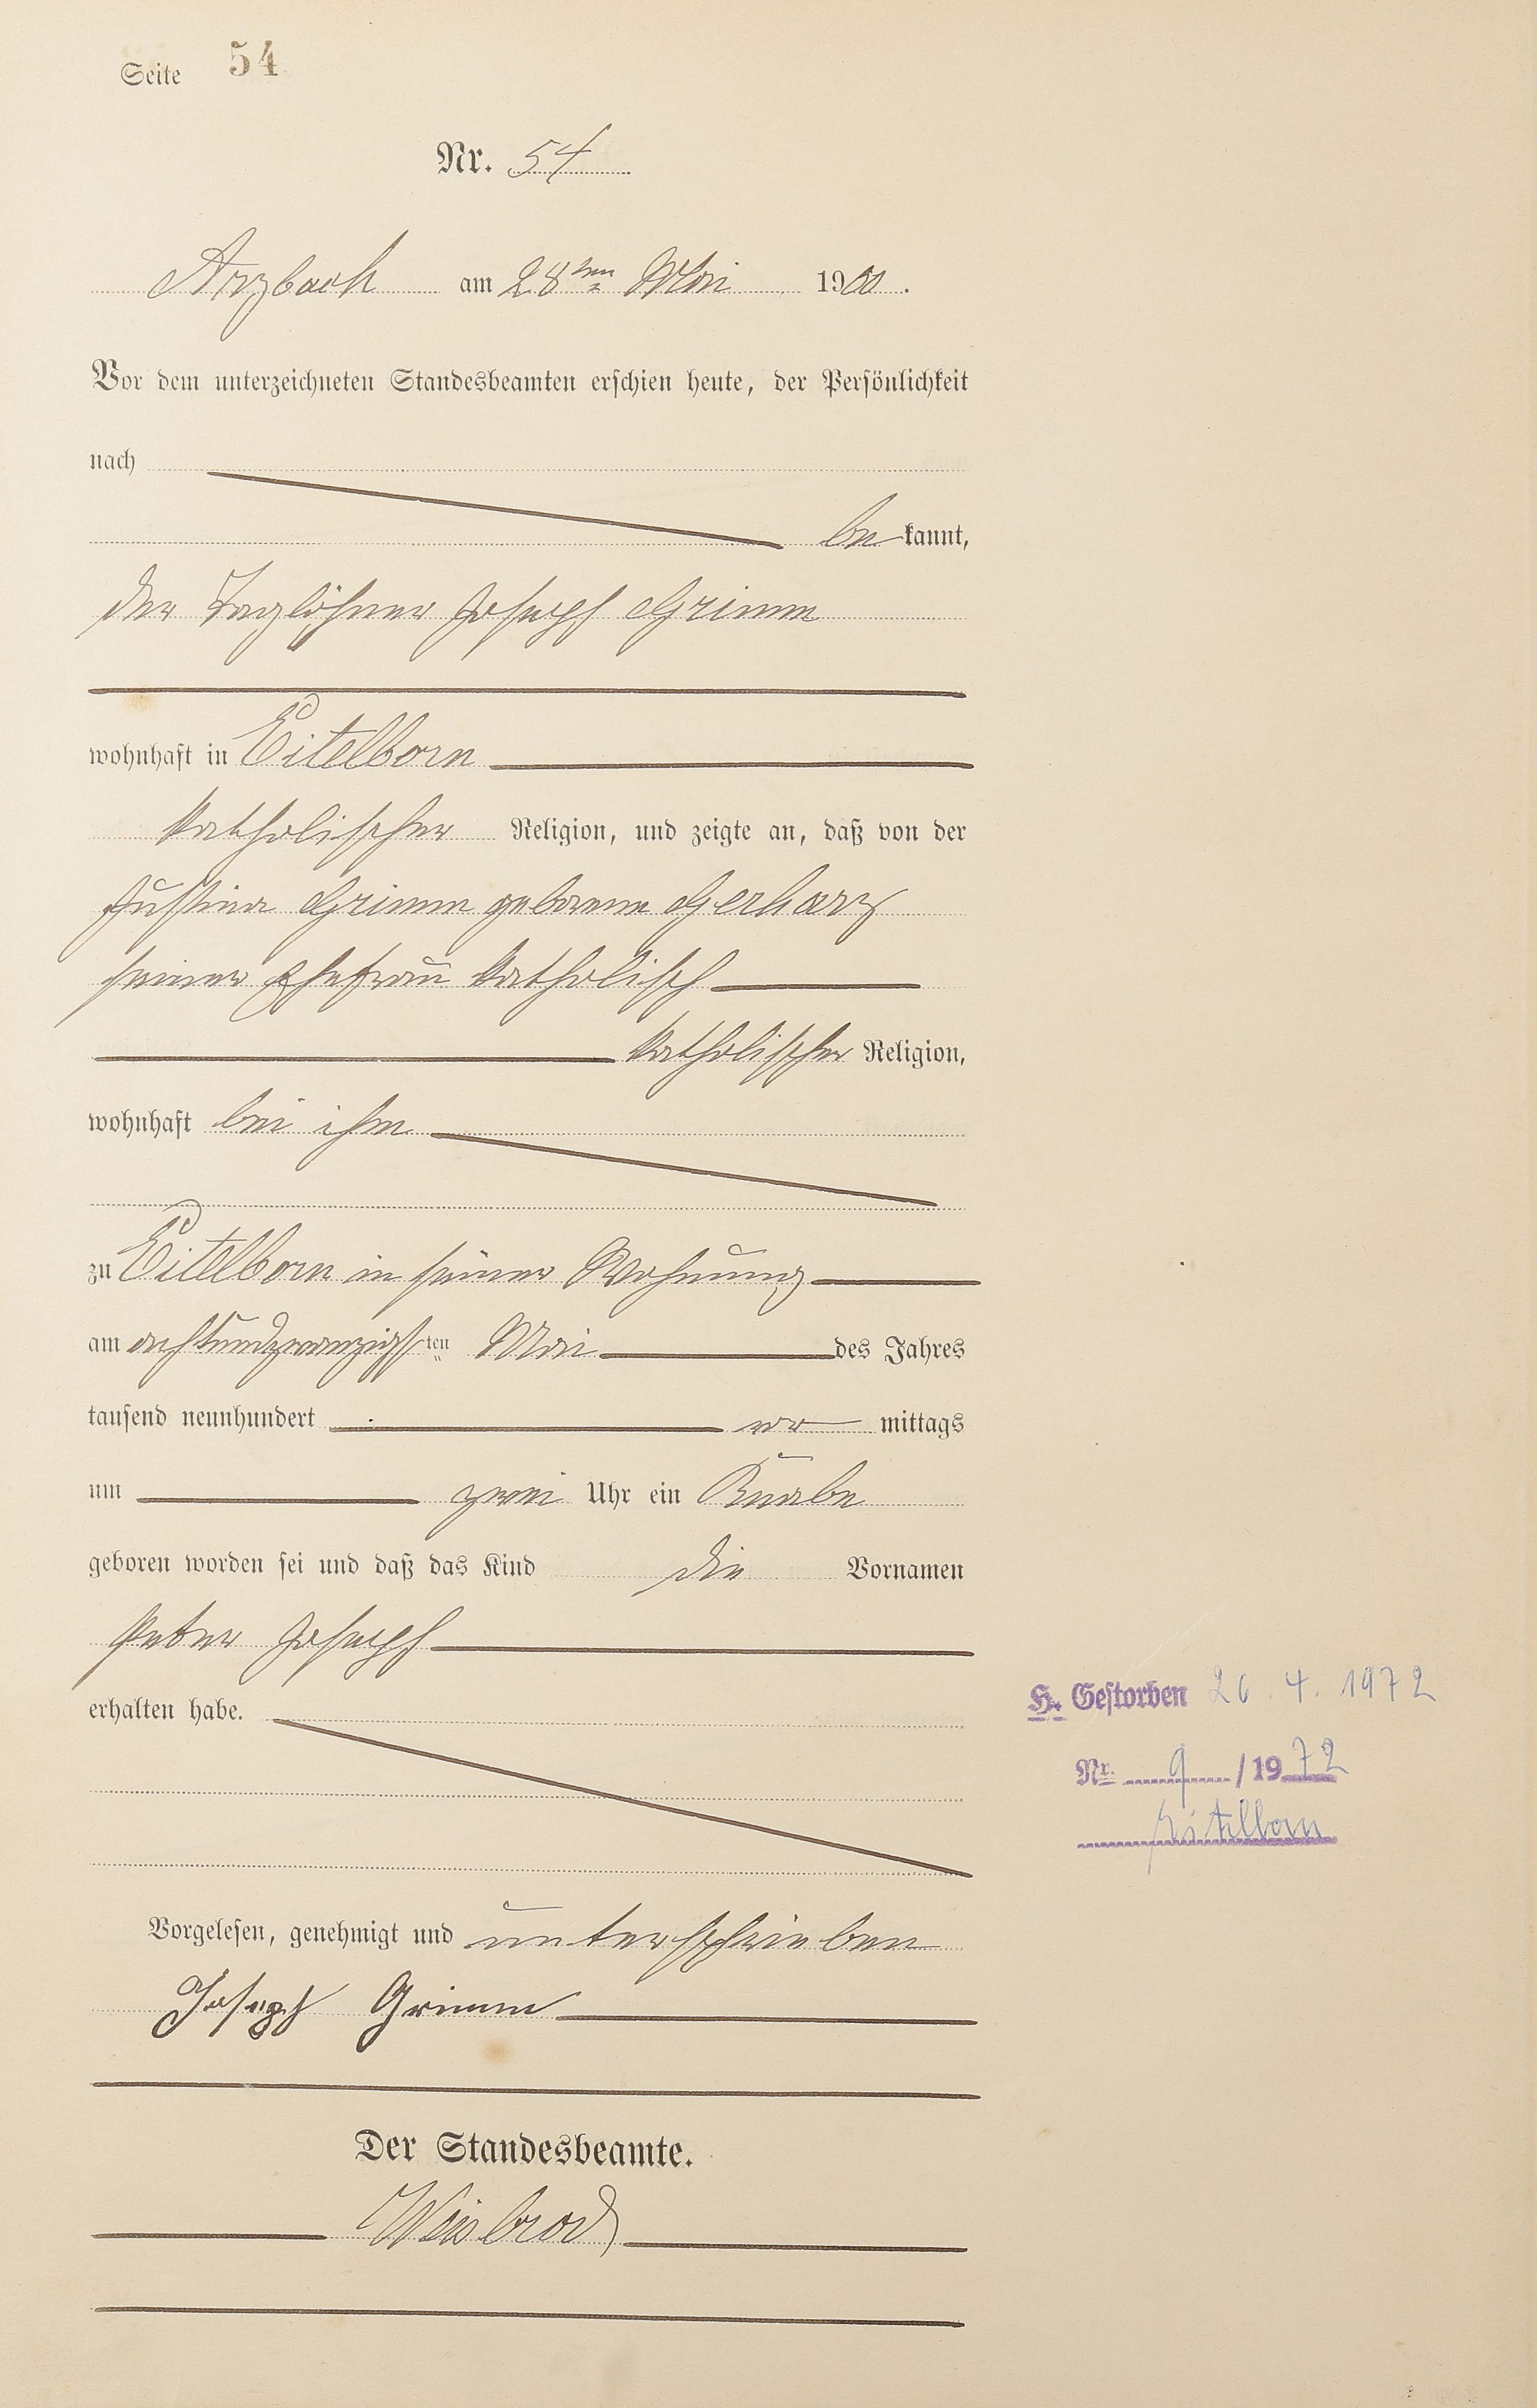 Seite 54
Nr. 54
Arzbach am 28ten Mai 1900.
Vor dem unterzeichneten Standesbeamten erschien heute, der Persönlichkeit
nach
be kannt,
der Taglöhner Joseph Grimm
wohnhaft in Eitelborn
katholischer Religion, und zeigte an, daß von der
Justina Grimm geborene Gerharz
seiner Ehefrau katholisch
katholischer Religion,
wohnhaft bei ihm
zu Eitelborn in seiner Wohnung
am achtundzwanzigsten Mai des Jahres
tausend neunhundert vor mittags
um zwei Uhr ein Knabe
geboren worden sei und daß das Kind die Vornamen
Peter Joseph
erhalten habe.
H. Gestorben 26. 4. 1972
Nr. 9 / 1972
Eitelborn
Vorgelesen, genehmigt und unterschrieben
Joseph Grimm
Der Standesbeamte.
Weisbrod